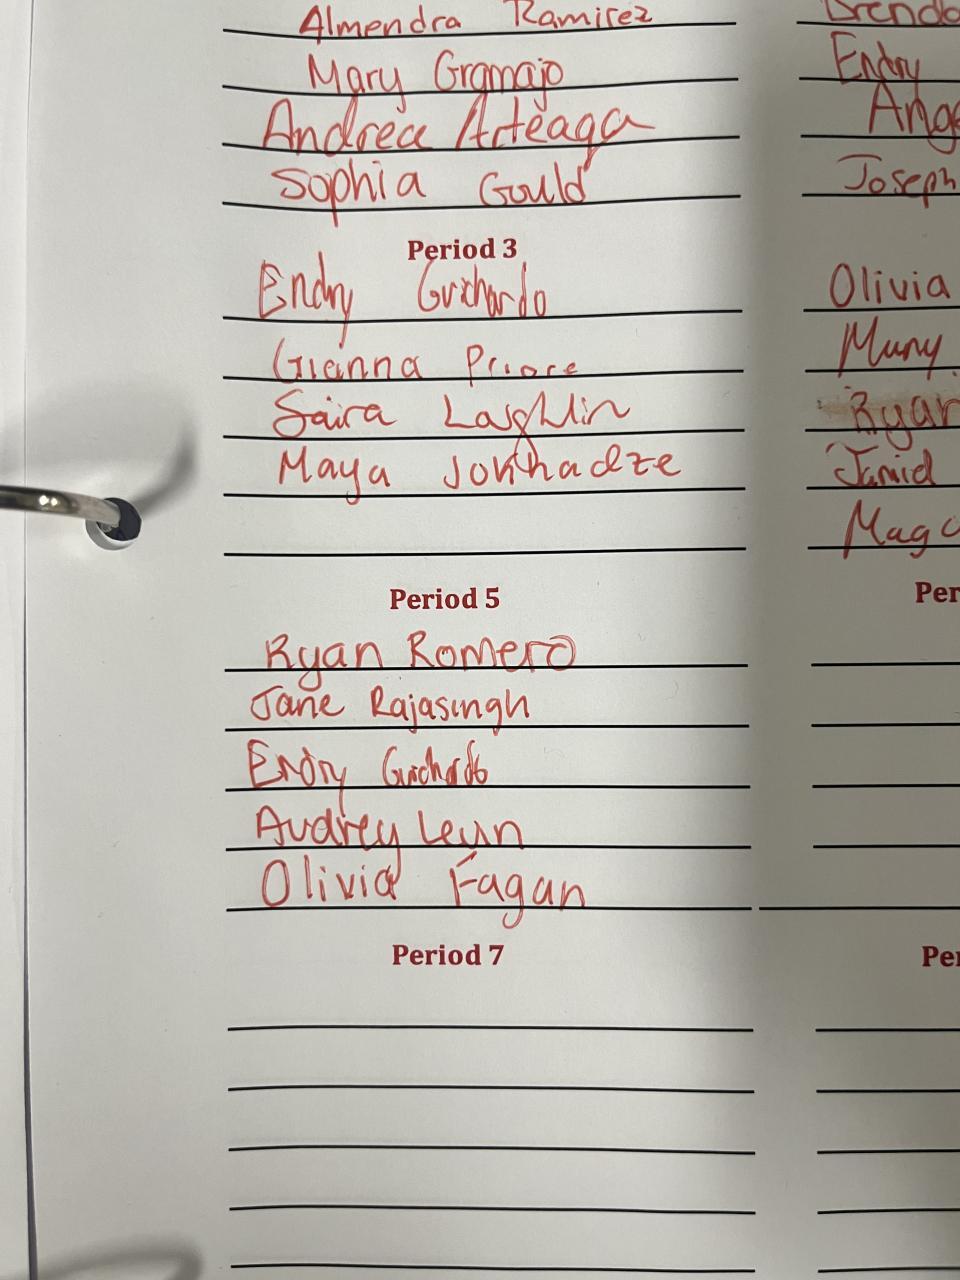 Almendra Ramirez
Mary Gramajo
Andrea Arteaga
Sophia Gould
Period 3
Endry Guichardo
Gianna Priore
Saira Laughlin
Maya Jokhadze
Period 5
Ryan Romero
Jane Rajasingh
Endry Guichardo
Audrey Leun
Olivia Fagan
Period 7
Brenda
Endry
Ang
Joseph
Olivia
Ryan
Per
Per